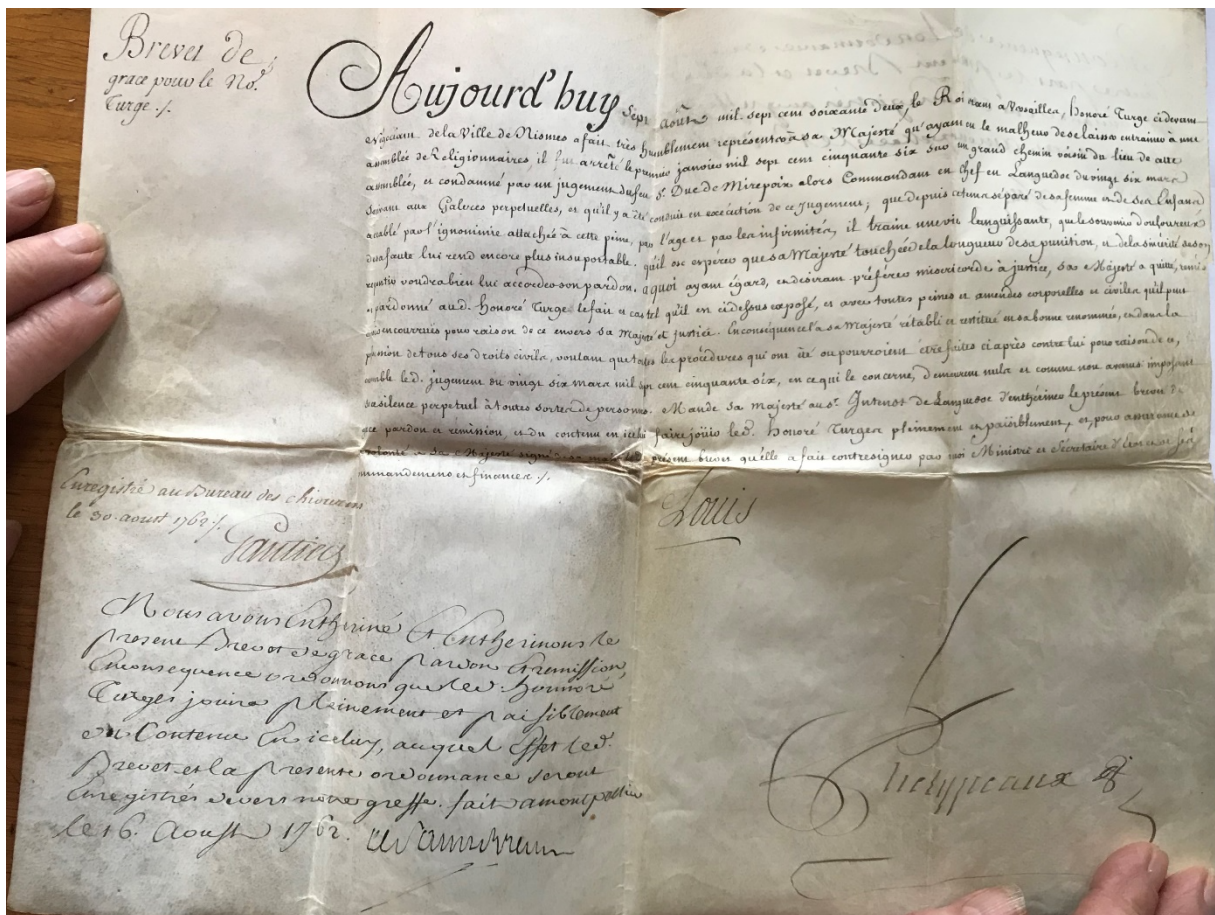 Brevet de
grace pour le No.
Turge ./.
Aujourd'huy sept Août mil sept cent soixante deux, le Roi étant à Versailles, honoré Turge cidevant
négociant de la Ville de Nismes a fait très humblement représenter à sa Majesté qu'ayant eu le malheur de se laisser entrainer à une
assemblée de Religionnaires il fut arrêté le premier janvier mil sept cent cinquante six sur un grand chemin voisin du lieu de cette
assemblée, et condamné par un jugement du feu S. Duc de Mirepoix alors Commandant en chef en Languedoc du vingt six mars
suivant aux Galeres perpetuelles, et qu'il y a été conduit en exécution de ce jugement; que depuis ce tems séparé de sa femme et de ses Enfans
accablé par l'ignominie attachée à cette peine, par l'age et par les infirmités, il traine une vie languissante, que le souvenir douloureux
de sa faute lui rend encore plus insuportable. qu'il ose espérer que sa Majesté touchée de la longueur de sa punition, et de la sincérité de son
repentir voudra bien luc accorder son pardon. a quoi ayant égard, et desirant préférer misericorde à justice, sa Majesté a quitté, remis
et pardonné aud. Honoré Turge le fait et cas tel qu'il est cidessus exposé, et avec toutes peines et amendes corporelles et civiles qu'il peut
avoir encourrues pour raison de ce envers sa Majesté et justice. En conséquence l'a sa Majesté rétabli et restitué en sa bonne renommée, et dans la
possession de tous ses droits civils, voulant que toutes les procédures qui ont été ou pourroient être faites ci après contre lui pour raison de ce,
ensemble led. jugement du vingt six mars mil sept cent cinquante six, en ce qui le concerne, demeurent nuls et comme non avenus imposant
sur ce silence perpetuel à toutes sortes de personnes. Mande sa majesté au S. Intend.t de Languedoc d'enthériner le présent brevet de
grace pardon et rémission, et du contenu en icelui faire joüir led. Honoré Turges pleinement et paisiblement, et, pour assurance de
sa volonté sa Majesté signé de sa main le présent brevet qu'elle a fait contresigner par moi Ministre et Sécretaire d'Etat et de ses
commandemens et finances ./.
Louis
Enregistré au Bureau des chiourmes
le 30. aoust 1762 ./.
Gautier
Nous avons Enthériné Et Entherinons le
present Brevet de grace pardon Et remission,
En consequence ordonnons que led. honnoré
Turges jouira pleinement et paisiblement
du Contenu En iceluy, auquel Effet led.
Brevet et la presente ordonnance seront
Enregistrés devers notre greffe. fait a montpellier
le 16. Aoust 1762. de Saint Priest
Phelypeaux